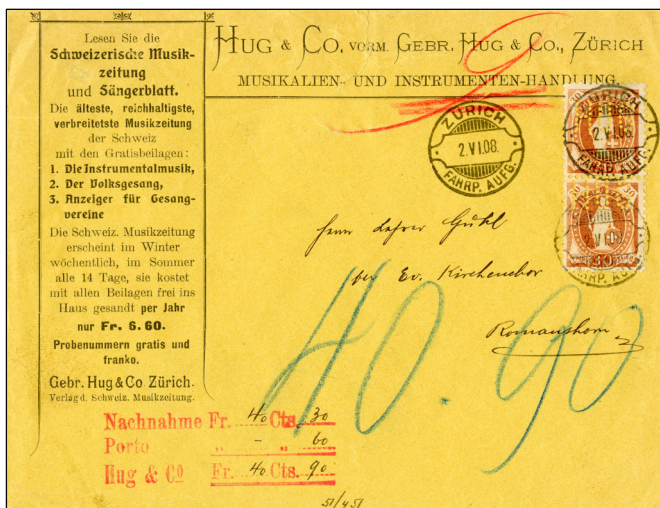 Lesen Sie die
Schweizerische Musik-
zeitung
und Sängerblatt.
Die älteste, reichhaltigste,
verbreitetste Musikzeitung
der Schweiz
mit den Gratisbeilagen:
1. Die Instrumentalmusik,
2. Der Volksgesang,
3. Anzeiger für Gesang-
vereine
Die Schweiz. Musikzeitung
erscheint im Winter
wöchentlich, im Sommer
alle 14 Tage, sie kostet
mit allen Beilagen frei ins
Haus gesandt per Jahr
nur Fr. 6.60.
Probenummern gratis und
franko.
Gebr. Hug & Co Zürich.
Verlag d. Schweiz. Musikzeitung.
HUG & CO, VORM. GEBR. HUG & CO., ZÜRICH
MUSIKALIEN- UND INSTRUMENTEN-HANDLUNG.
ZÜRICH
2.VI.08.
FAHRP. AUFG.
ZÜRICH
2.VI.08.
FAHRP. AUFG.
30
30
VI.08.
FAHRP. AUFG.
30
Herrn Lehrer Gühl
per Ev. Kirchenchor
Romanshorn
40.90
Nachnahme Fr. 40 Cts. 30
Porto „ - „ 60
Hug & Co Fr. 40 Cts. 90
51/451